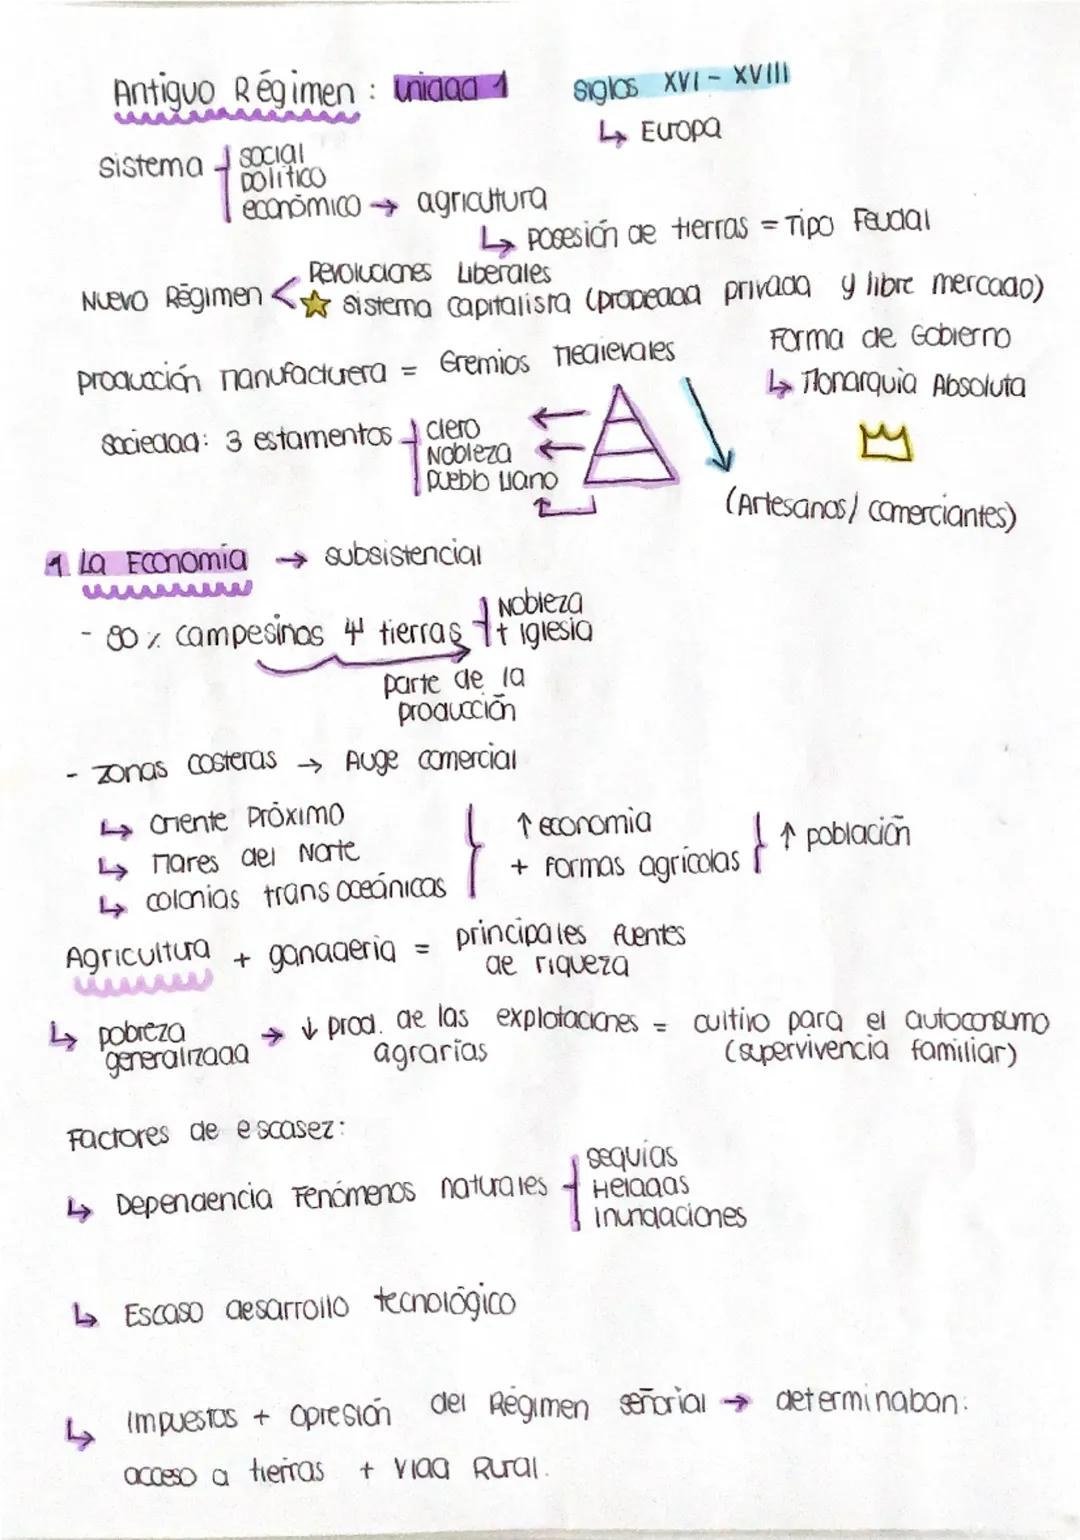 Antiguo Régimen : Unidad 1
siglos XVI - XVIII
↳ Europa
sistema
social
político
económico → agricutura
↳ posesión de tierras = Tipo Feudal
Nuevo Régimen <
Revoluciones Liberales
☆ sistema capitalista (propedad privada y libre mercado)
Forma de Gobierno
↳ Monarquia Absoluta
producción manufacturera = Gremios medievales
Sociedad: 3 estamentos
clero
Nobleza
pueblo llano
(Artesanos/ comerciantes)
1 La Economía → subsistencial
- 80 % campesinos tierras
Nobleza
+ Iglesia
parte de la
producción
- zonas costeras → Auge comercial
↳ Oriente Próximo
↳ Mares del Norte
↳ colonias transoceánicas
↑ economia
+ formas agrícolas
↑ población
Agricultura + ganaderia = principales fuentes
de riqueza
↳ pobreza
generalizada
→ ↓ prod. de las explotaciones = cultivo para el autoconsumo
agrarias
(supervivencia familiar)
Factores de escasez:
↳ Dependencia Fenómenos naturales
sequías
Heladas
inundaciones
↳ Escaso desarrollo tecnológico
↳ Impuestos + opresión del Régimen señorial → determinaban:
acceso a tierras + vida Rural.